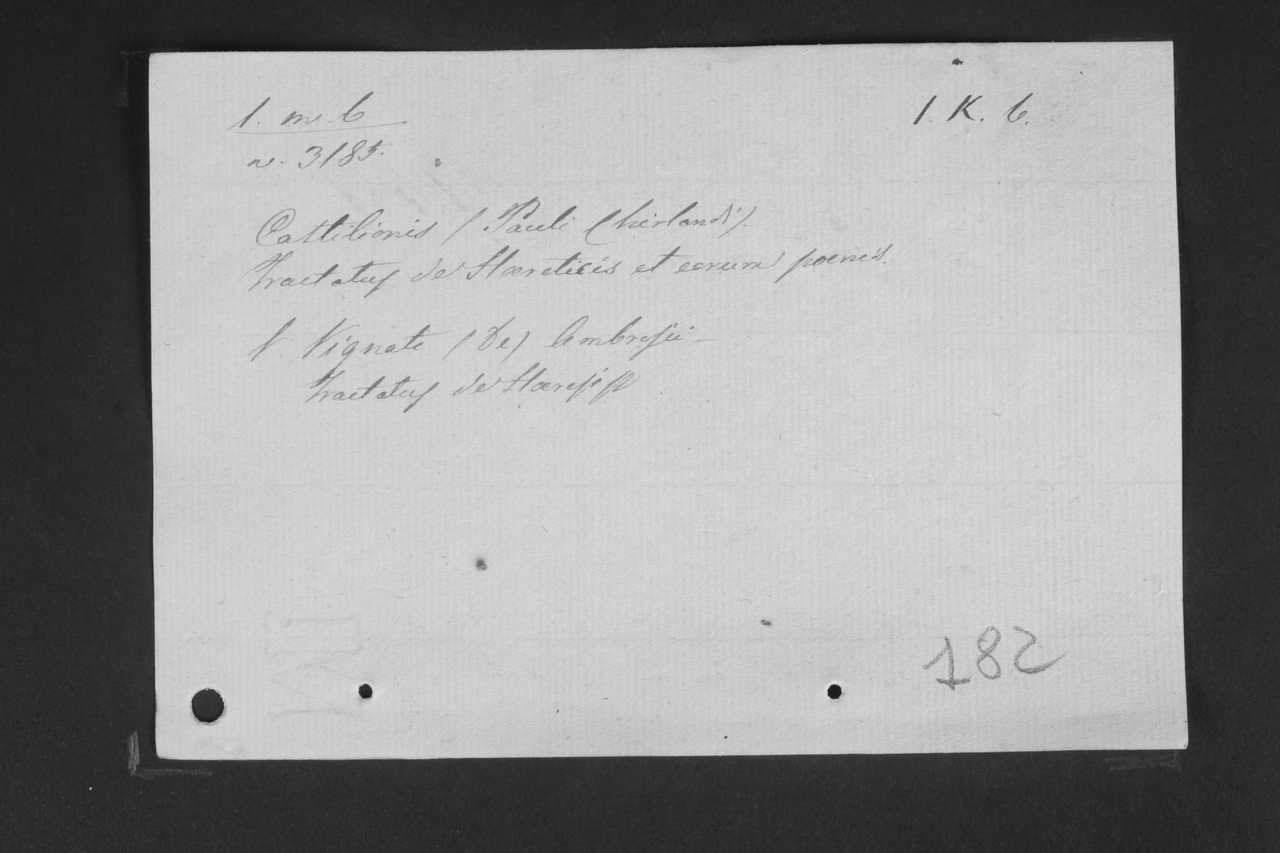 1. m. 6
I. K. 6.
n. 3185.
Castilionis (Pauli Ghirlandi).
Tractatus de Haereticis et eorum poenis.
V. Vignate (De) Ambrosii
Tractatus de Haeresi
182